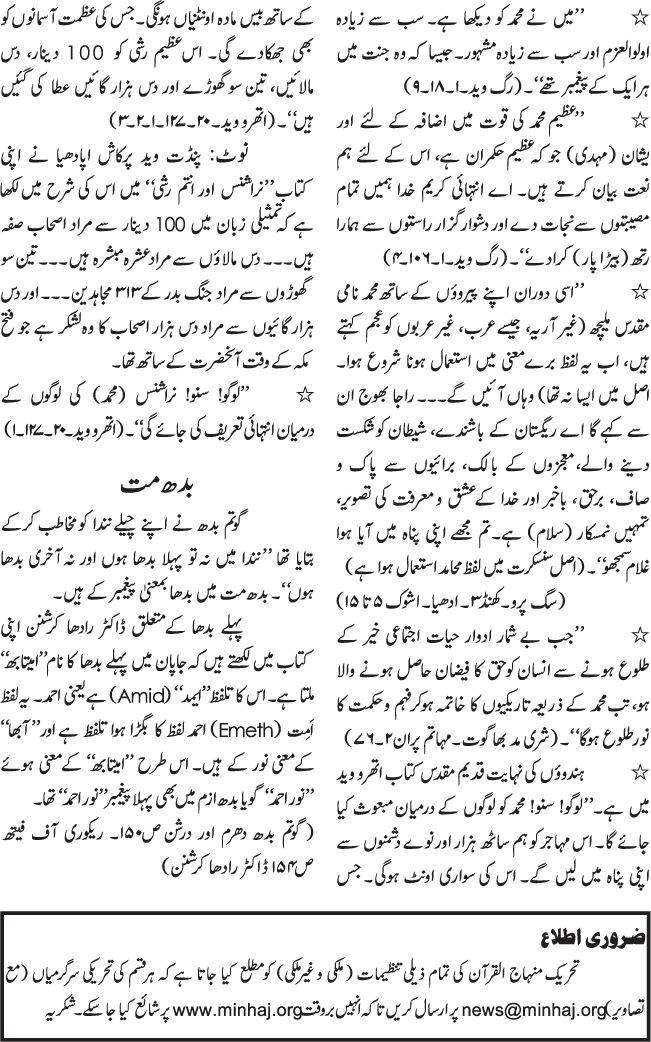 ☆ ’’میں نے محمد کو دیکھا ہے۔ سب سے زیادہ
اولوالعزم اور سب سے زیادہ مشہور۔ جیسا کہ وہ جنت میں
ہر ایک کے پیغمبر تھے‘‘۔ (رگ وید۔۱۔۱۸۔۹)
☆ ’’عظیم محمد کی قوت میں اضافہ کے لئے اور
یشان (مہدی) جو کہ عظیم حکمران ہے، اس کے لئے ہم
نعت بیان کرتے ہیں۔ اے انتہائی کریم خدا ہمیں تمام
مصیبتوں سے نجات دے اور دشوار گزار راستوں سے ہمارا
رتھ (بیڑا پار) کرادے‘‘۔ (رگ وید۔۱۔۱۰۶۔۴)
☆ ’’اسی دوران اپنے پیروؤں کے ساتھ محمد نامی
مقدس ملیچھ (غیر آریہ، جیسے عرب، غیر عربوں کو عجم کہتے
ہیں، اب یہ لفظ برے معنی میں استعمال ہونا شروع ہوا۔
اصل میں ایسا نہ تھا) وہاں آئیں گے۔۔۔ راجا بھوج ان
سے کہے گا اے ریگستان کے باشندے، شیطان کو شکست
دینے والے، معجزوں کے مالک، برائیوں سے پاک و
صاف، برحق، باخبر اور خدا کے عشق و معرفت کی تصویر،
تمہیں نمسکار (سلام) ہے۔ تم مجھے اپنی پناہ میں آیا ہوا
غلام سمجھو‘‘۔ (اصل سنسکرت میں لفظ محامد استعمال ہوا ہے)
(سگ پرو۔ کھنڈ۳۔ ادھیا۔ اشوک ۵ تا ۱۵)
☆ ’’جب بے شمار ادوار حیات اجتماعی خیر کے
طلوع ہونے سے انسان کو حق کا فیضان حاصل ہونے والا
ہو، تب محمد کے ذریعہ تاریکیوں کا خاتمہ ہوکر فہم و حکمت کا
نور طلوع ہوگا‘‘۔ (شری مد بھاگوت۔ مہاتم پران ۲۔۷۶)
☆ ہندوؤں کی نہایت قدیم مقدس کتاب اتھرو وید
میں ہے۔ ’’لوگو! سنو! محمد کو لوگوں کے درمیان مبعوث کیا
جائے گا۔ اس مہاجر کو ہم ساٹھ ہزار اور نوے دشمنوں سے
اپنی پناہ میں لیں گے۔ اس کی سواری اونٹ ہوگی۔ جس
کے ساتھ بیس مادہ اونٹنیاں ہونگی۔ جس کی عظمت آسمانوں کو
بھی جھکا دے گی۔ اس عظیم رشی کو 100 دینار، دس
مالائیں، تین سو گھوڑے اور دس ہزار گائیں عطا کی گئیں
ہیں‘‘۔ (اتھرو وید۔۲۰۔۱۲۷۔۱۔۲۔۳)
نوٹ: پنڈت وید پرکاش اپادھیا نے اپنی
کتاب ’’نراشنس اور انتم رشی‘‘ میں اس کی شرح میں لکھا
ہے کہ تمثیلی زبان میں 100 دینار سے مراد اصحاب صفہ
ہیں۔۔۔ دس مالاؤں سے مراد عشرہ مبشرہ ہیں۔۔۔ تین سو
گھوڑوں سے مراد جنگ بدر کے ۳۱۳ مجاہدین۔۔۔ اور دس
ہزار گائیوں سے مراد دس ہزار اصحاب کا وہ لشکر ہے جو فتح
مکہ کے وقت آنحضرت کے ساتھ تھا۔
☆ ’’لوگو! سنو! نراشنس (محمد) کی لوگوں کے
درمیان انتہائی تعریف کی جائے گی‘‘۔ (اتھرو وید۔۲۰۔۱۲۷۔۱)
بدھ مت
گوتم بدھ نے اپنے چیلے نندا کو مخاطب کرکے
بتایا تھا ’’نندا میں نہ تو پہلا بدھا ہوں اور نہ آخری بدھا
ہوں‘‘۔ بدھ مت میں بدھا بمعنی پیغمبر کے ہیں۔
پہلے بدھا کے متعلق ڈاکٹر رادھا کرشنن اپنی
کتاب میں لکھتے ہیں کہ جاپان میں پہلے بدھا کا نام ’’امیتابھ‘‘
ملتا ہے۔ اس کا تلفظ ’’ایمد‘‘ (Amid) ہے یعنی احمد۔ یہ لفظ
اَمِت (Emeth) احمد لفظ کا بگڑا ہوا تلفظ ہے اور ’’آبھا‘‘
کے معنی نور کے ہیں۔ اس طرح ’’امیتابھ‘‘ کے معنی ہوئے
’’نور احمد‘‘ گویا بدھ ازم میں بھی پہلا پیغمبر ’’نور احمد‘‘ تھا۔
(گوتم بدھ دھرم اور درشن ص۱۵۰۔ ریکوری آف فیتھ
ص۱۵۴ ڈاکٹر رادھا کرشنن)
ضروری اطلاع
تحریک منہاج القرآن کی تمام ذیلی تنظیمات (ملکی و غیر ملکی) کو مطلع کیا جاتا ہے کہ ہر قسم کی تحریکی سرگرمیاں (مع
تصاویر) news@minhaj.org پر ارسال کریں تاکہ انہیں بروقت www.minhaj.org پر شائع کیا جاسکے۔ شکریہ